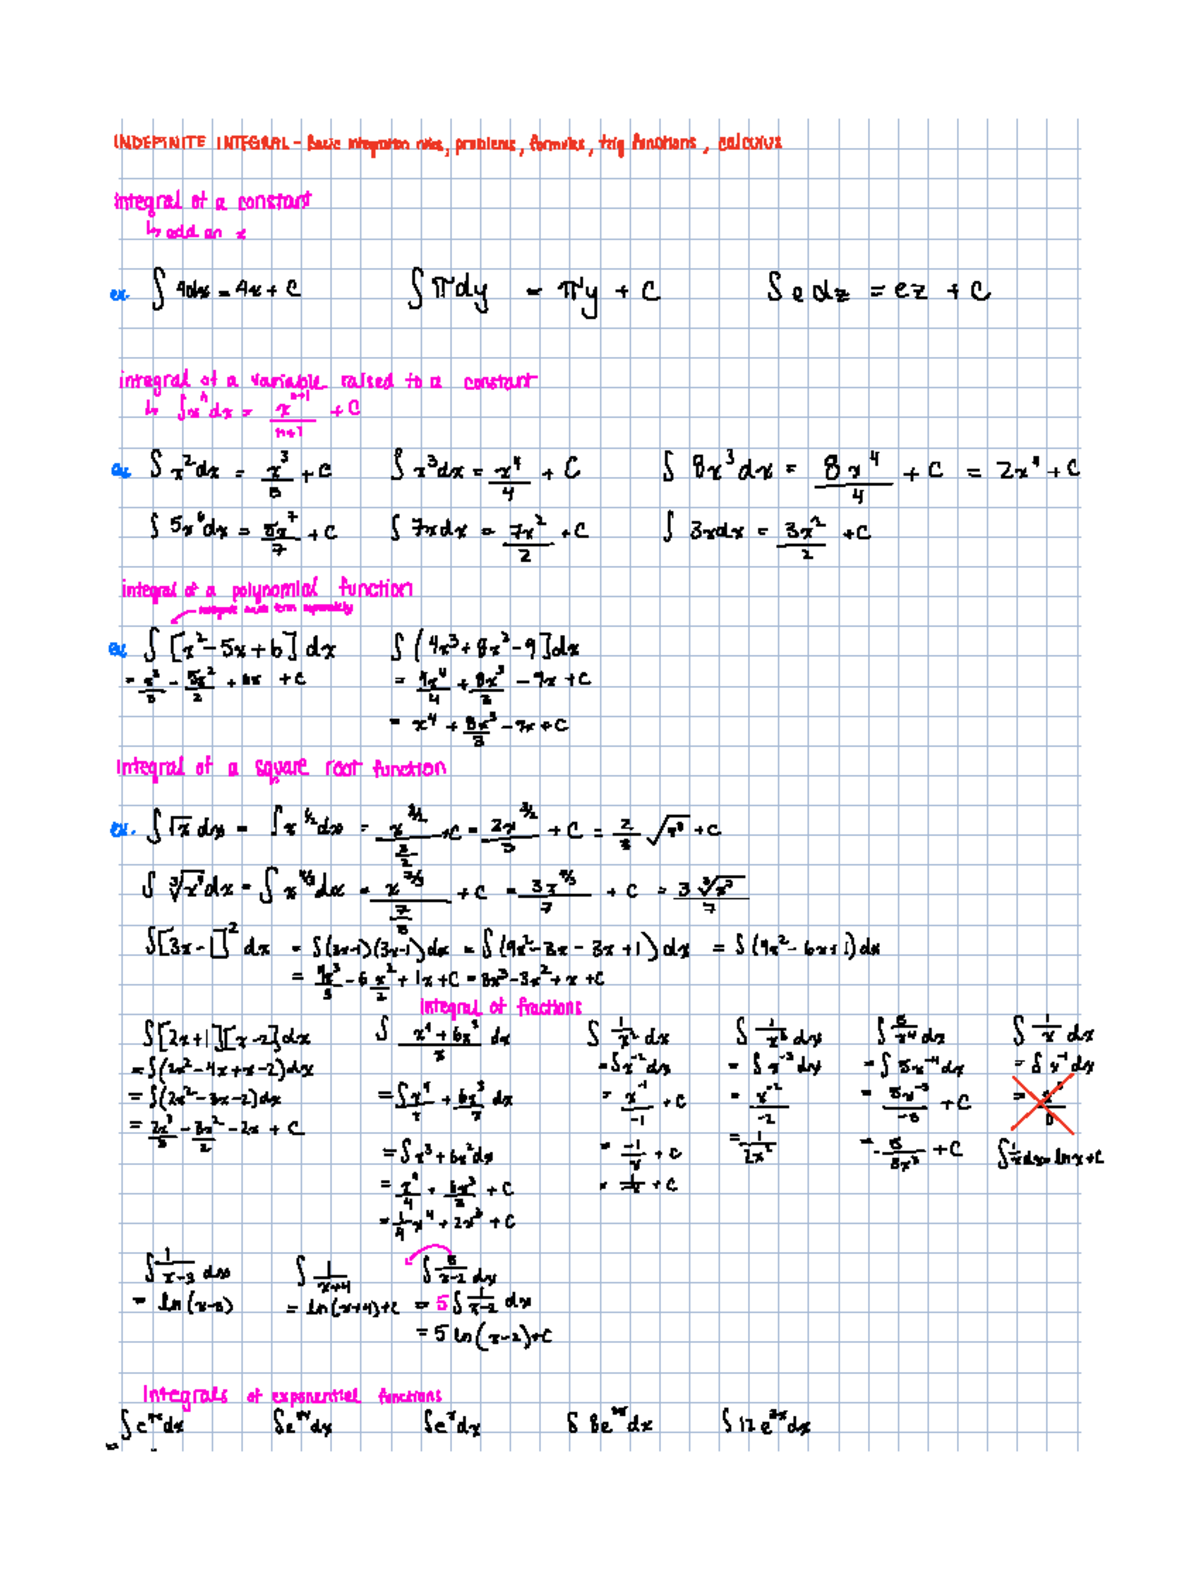 INDEFINITE INTEGRAL - Basic integration rules, problems, formulas, trig functions, calculus
integral of a constant
↳ add an x
ex. ∫ 4dx = 4x + C ∫ πdy = πy + C ∫ e dz = ez + C
integral of a variable raised to a constant
↳ ∫xⁿ dx = x^(n+1)/(n+1) + C
ex ∫ x² dx = x³/3 + C ∫ x³ dx = x⁴/4 + C ∫ 8x³ dx = 8x⁴/4 + C = 2x⁴ + C
∫ 5x⁶ dx = 5x⁷/7 + C ∫ 7x dx = 7x²/2 + C ∫ 3x dx = 3x²/2 + C
integral of a polynomial function
integrate each term separately
ex ∫ [x² - 5x + 6] dx ∫ (4x³ + 8x² - 9] dx
= x³/3 - 5x²/2 + 6x + C = 4x⁴/4 + 8x³/3 - 9x + C
= x⁴ + 8x³/3 - 9x + C
Integral of a square root function
ex. ∫ √x dx = ∫ x^(1/2) dx = x^(3/2)/(3/2) + C = 2x^(3/2)/3 + C = 2/3 √x³ + C
∫ ∛x⁴ dx = ∫ x^(4/3) dx = x^(7/3)/(7/3) + C = 3x^(7/3)/7 + C = 3∛x⁷/7
∫[3x - 1]² dx = ∫(3x-1)(3x-1) dx = ∫(9x² - 3x - 3x + 1) dx = ∫(9x² - 6x + 1) dx
= 9x³/3 - 6x²/2 + 1x + C = 3x³ - 3x² + x + C
integral of fractions
∫[2x+1][x-2] dx ∫ (x⁴ + 6x³)/x dx ∫ 1/x² dx ∫ 1/x³ dx ∫ 5/x⁴ dx ∫ 1/x dx
= ∫(2x² - 4x + x - 2) dx = ∫x⁻² dx = ∫ x⁻³ dx = ∫ 5x⁻⁴ dx = ∫ x⁻¹ dx
= ∫(2x² - 3x - 2) dx = ∫ x⁴/x + 6x³/x dx = x⁻¹/-1 + C = x⁻²/-2 = 5x⁻³/-3 + C = x⁰/0
= 2x³/3 - 3x²/2 - 2x + C = ∫ x³ + 6x² dx = -1/x + C = 1/2x² = -5/3x³ + C ∫1/x dx = ln x + C
= x⁴/4 + 6x³/3 + C
= 1/4 x⁴ + 2x³ + C
∫ 1/(x-3) dx ∫ 1/(x+4) ∫ 5/(x-2) dx
= ln(x-3) = ln(x+4) + C = 5 ∫ 1/(x-2) dx
= 5 ln(x-2) + C
Integrals of exponential functions
∫ 12 e^(3x) dx
=